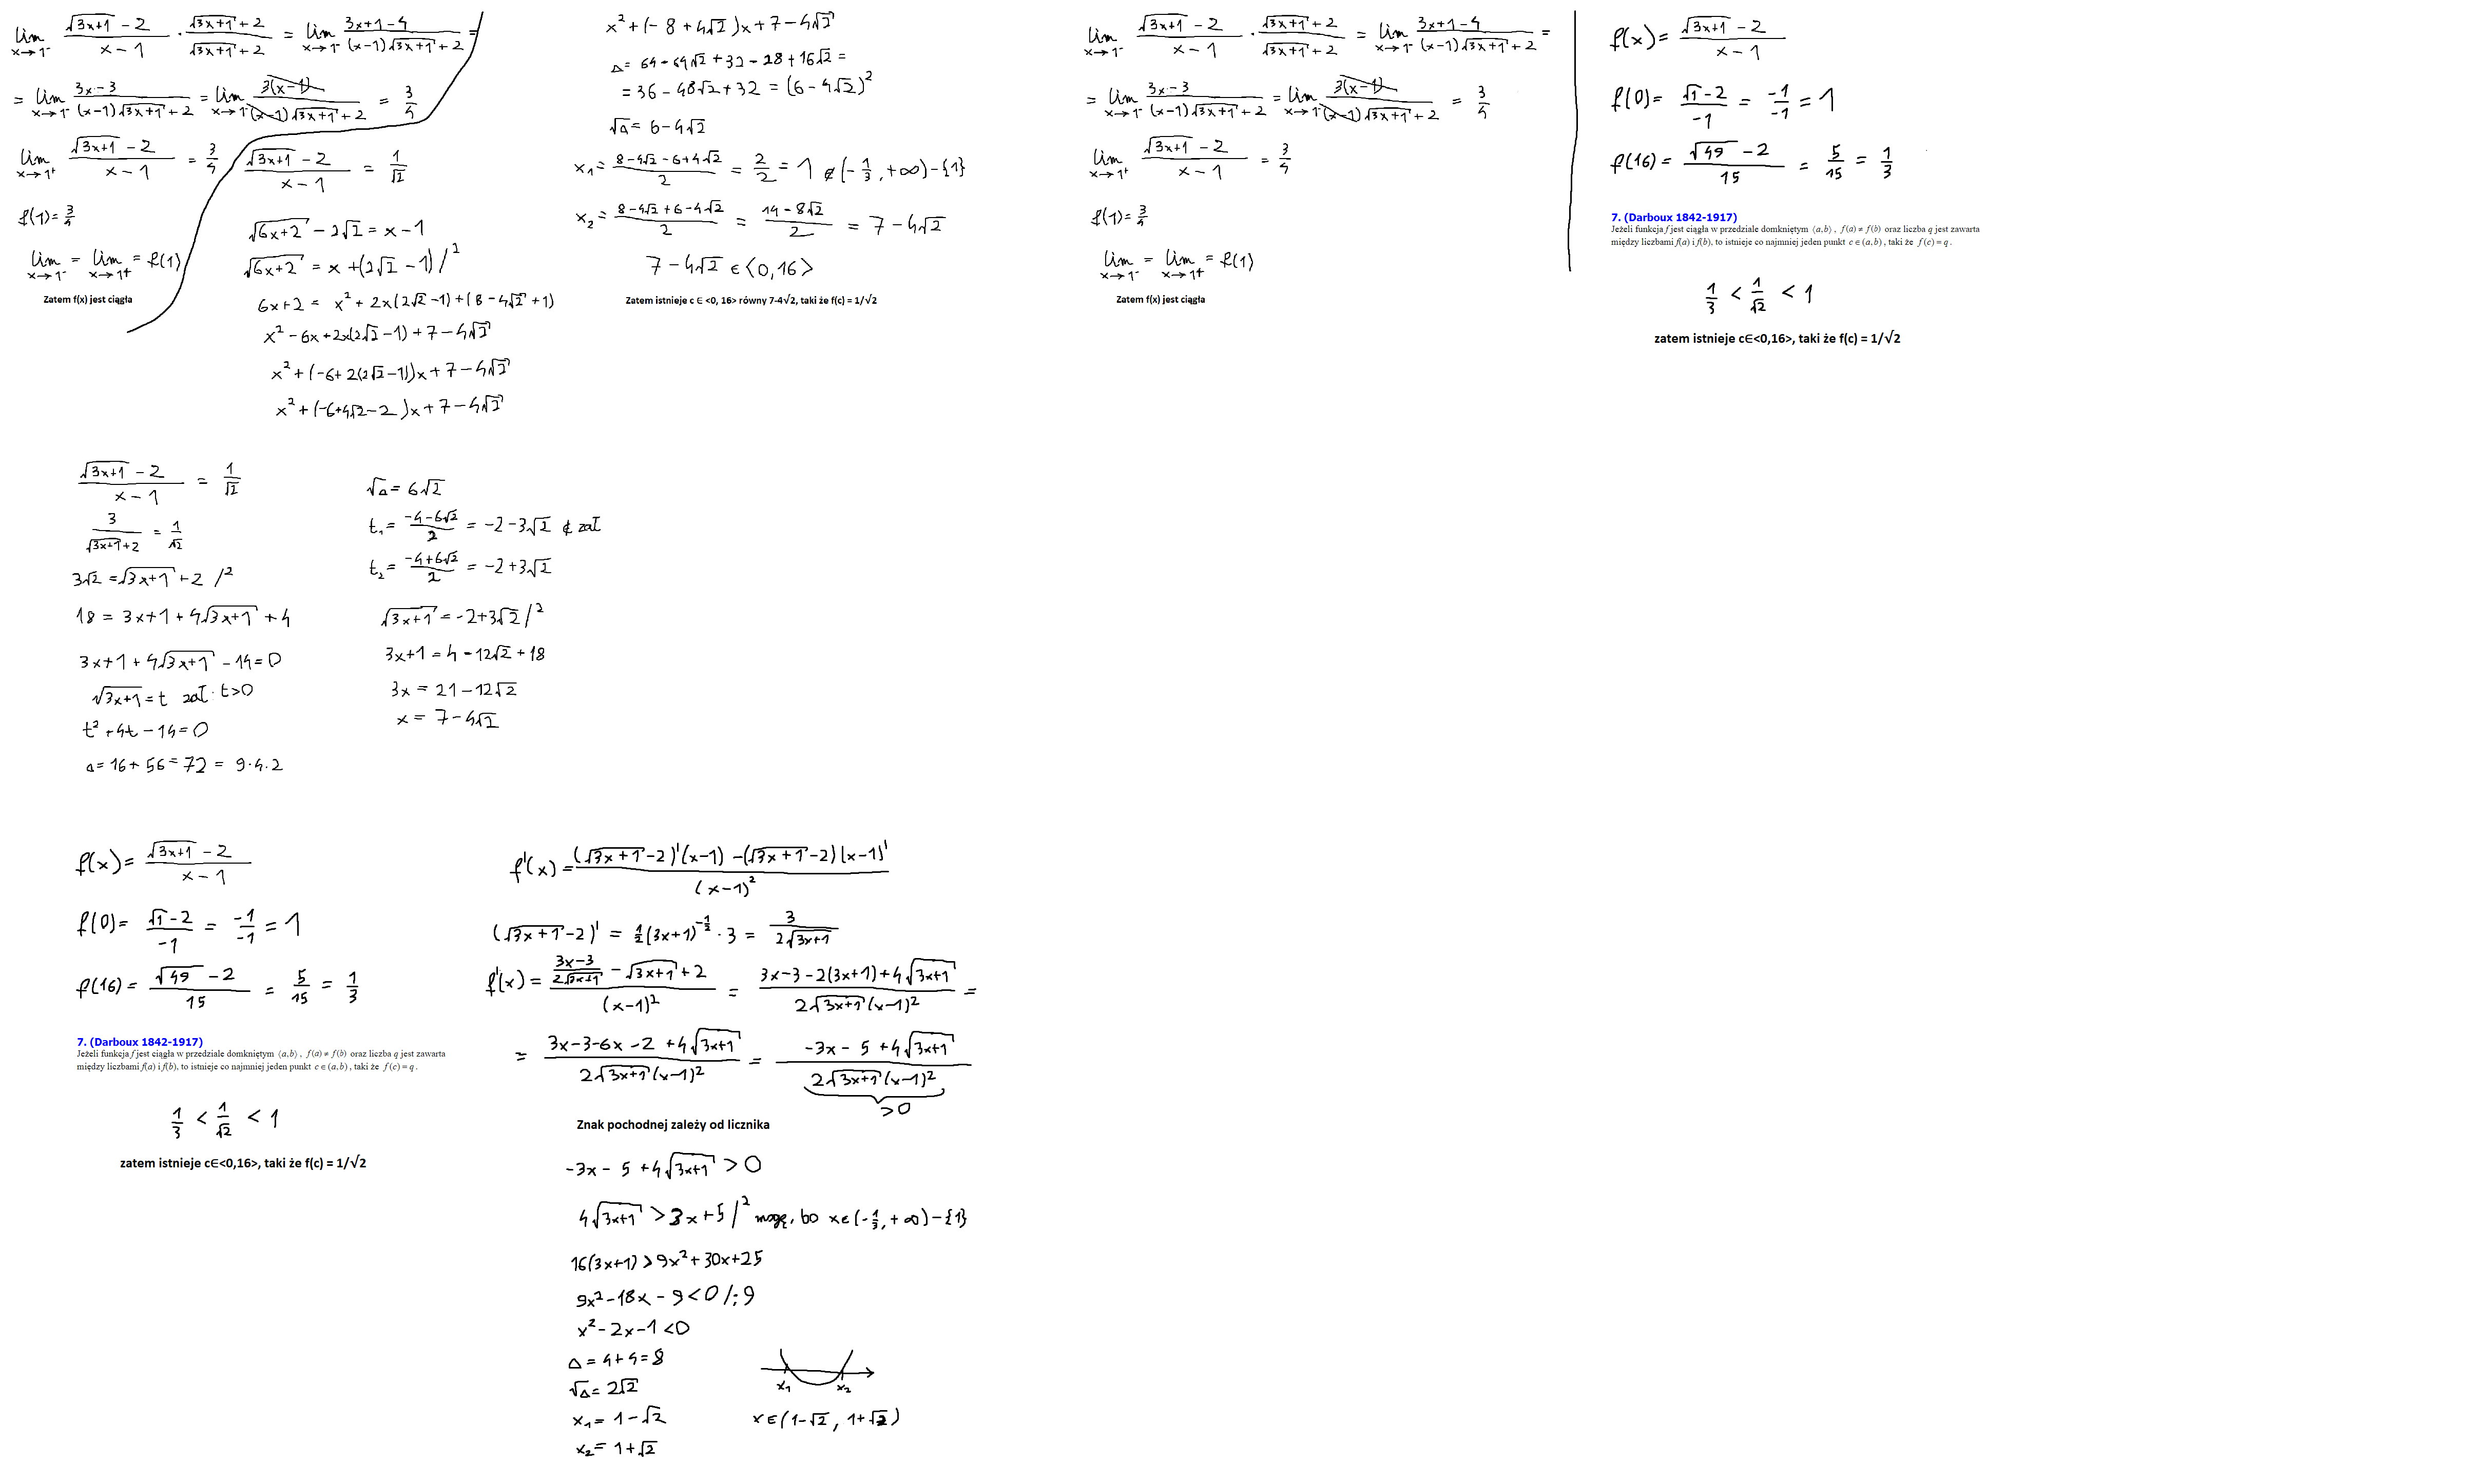 lim x→1⁻ (√(3x+1) - 2)/(x - 1) · (√(3x+1) + 2)/(√(3x+1) + 2) = lim x→1⁻ (3x+1-4)/((x-1)√(3x+1) + 2) =
= lim x→1⁻ (3x-3)/((x-1)√(3x+1) + 2) = lim x→1⁻ 3(x-1)/((x-1)√(3x+1) + 2) = 3/4
lim x→1⁺ (√(3x+1) - 2)/(x - 1) = 3/4
f(1) = 3/4
lim x→1⁻ = lim x→1⁺ = f(1)
Zatem f(x) jest ciągła
(√(3x+1) - 2)/(x - 1) = 1/√2
√(6x+2) - 2√2 = x - 1
√(6x+2) = x + (2√2 - 1) /²
6x+2 = x² + 2x(2√2 - 1) + (8 - 4√2 + 1)
x² - 6x + 2x(2√2 - 1) + 7 - 4√2
x² + (-6 + 2(2√2 - 1))x + 7 - 4√2
x² + (-6 + 4√2 - 2)x + 7 - 4√2
x² + (-8 + 4√2)x + 7 - 4√2
Δ = 64 - 64√2 + 32 - 28 + 16√2 =
= 36 - 48√2 + 32 = (6 - 4√2)²
√Δ = 6 - 4√2
x₁ = (8 - 4√2 - 6 + 4√2)/2 = 2/2 = 1 ∉ (-1/3, +∞) - {1}
x₂ = (8 - 4√2 + 6 - 4√2)/2 = (14 - 8√2)/2 = 7 - 4√2
7 - 4√2 ∈ <0,16>
Zatem istnieje c ∈ <0, 16> równy 7-4√2, taki że f(c) = 1/√2
lim x→1⁻ (√(3x+1) - 2)/(x - 1) · (√(3x+1) + 2)/(√(3x+1) + 2) = lim x→1⁻ (3x+1-4)/((x-1)√(3x+1) + 2) =
= lim x→1⁻ (3x-3)/((x-1)√(3x+1) + 2) = lim x→1⁻ 3(x-1)/((x-1)√(3x+1) + 2) = 3/4
lim x→1⁺ (√(3x+1) - 2)/(x - 1) = 3/4
f(1) = 3/4
lim x→1⁻ = lim x→1⁺ = f(1)
Zatem f(x) jest ciągła
f(x) = (√(3x+1) - 2)/(x - 1)
f(0) = (√1 - 2)/-1 = -1/-1 = 1
f(16) = (√49 - 2)/15 = 5/15 = 1/3
7. (Darboux 1842-1917)
Jeżeli funkcja f jest ciągła w przedziale domkniętym ⟨a,b⟩, f(a) ≠ f(b) oraz liczba q jest zawarta
między liczbami f(a) i f(b), to istnieje co najmniej jeden punkt c ∈ (a,b), taki że f(c) = q.
1/3 < 1/√2 < 1
zatem istnieje c∈<0,16>, taki że f(c) = 1/√2
(√(3x+1) - 2)/(x - 1) = 1/√2
3/(√(3x+1) + 2) = 1/√2
3√2 = √(3x+1) + 2 /²
18 = 3x+1 + 4√(3x+1) + 4
3x+1 + 4√(3x+1) - 14 = 0
√(3x+1) = t zał. t>0
t² + 4t - 14 = 0
Δ = 16 + 56 = 72 = 9·4·2
√Δ = 6√2
t₁ = (-4-6√2)/2 = -2-3√2 ∉ zał
t₂ = (-4+6√2)/2 = -2+3√2
√(3x+1) = -2+3√2 /²
3x+1 = 4 - 12√2 + 18
3x = 21 - 12√2
x = 7 - 4√2
f(x) = (√(3x+1) - 2)/(x - 1)
f(0) = (√1 - 2)/-1 = -1/-1 = 1
f(16) = (√49 - 2)/15 = 5/15 = 1/3
7. (Darboux 1842-1917)
Jeżeli funkcja f jest ciągła w przedziale domkniętym ⟨a,b⟩, f(a) ≠ f(b) oraz liczba q jest zawarta
między liczbami f(a) i f(b), to istnieje co najmniej jeden punkt c ∈ (a,b), taki że f(c) = q.
1/3 < 1/√2 < 1
zatem istnieje c∈<0,16>, taki że f(c) = 1/√2
f'(x) = ((√(3x+1)-2)'(x-1) - (√(3x+1)-2)(x-1)')/(x-1)²
(√(3x+1)-2)' = 1/2(3x+1)^(-1/2) · 3 = 3/(2√(3x+1))
f'(x) = ((3x-3)/(2√(3x+1)) - √(3x+1) + 2)/(x-1)² = (3x-3-2(3x+1)+4√(3x+1))/(2√(3x+1)(x-1)²) =
= (3x-3-6x-2+4√(3x+1))/(2√(3x+1)(x-1)²) = (-3x-5+4√(3x+1))/(2√(3x+1)(x-1)²)
>0
Znak pochodnej zależy od licznika
-3x - 5 + 4√(3x+1) > 0
4√(3x+1) > 3x+5 /² mogę, bo x∈(-1/3, +∞) - {1}
16(3x+1) > 9x² + 30x + 25
9x² - 18x - 9 < 0 /:9
x² - 2x - 1 < 0
Δ = 4 + 4 = 8
√Δ = 2√2
x₁ = 1 - √2
x₂ = 1 + √2
x₁ x₂
x∈(1-√2, 1+√2)